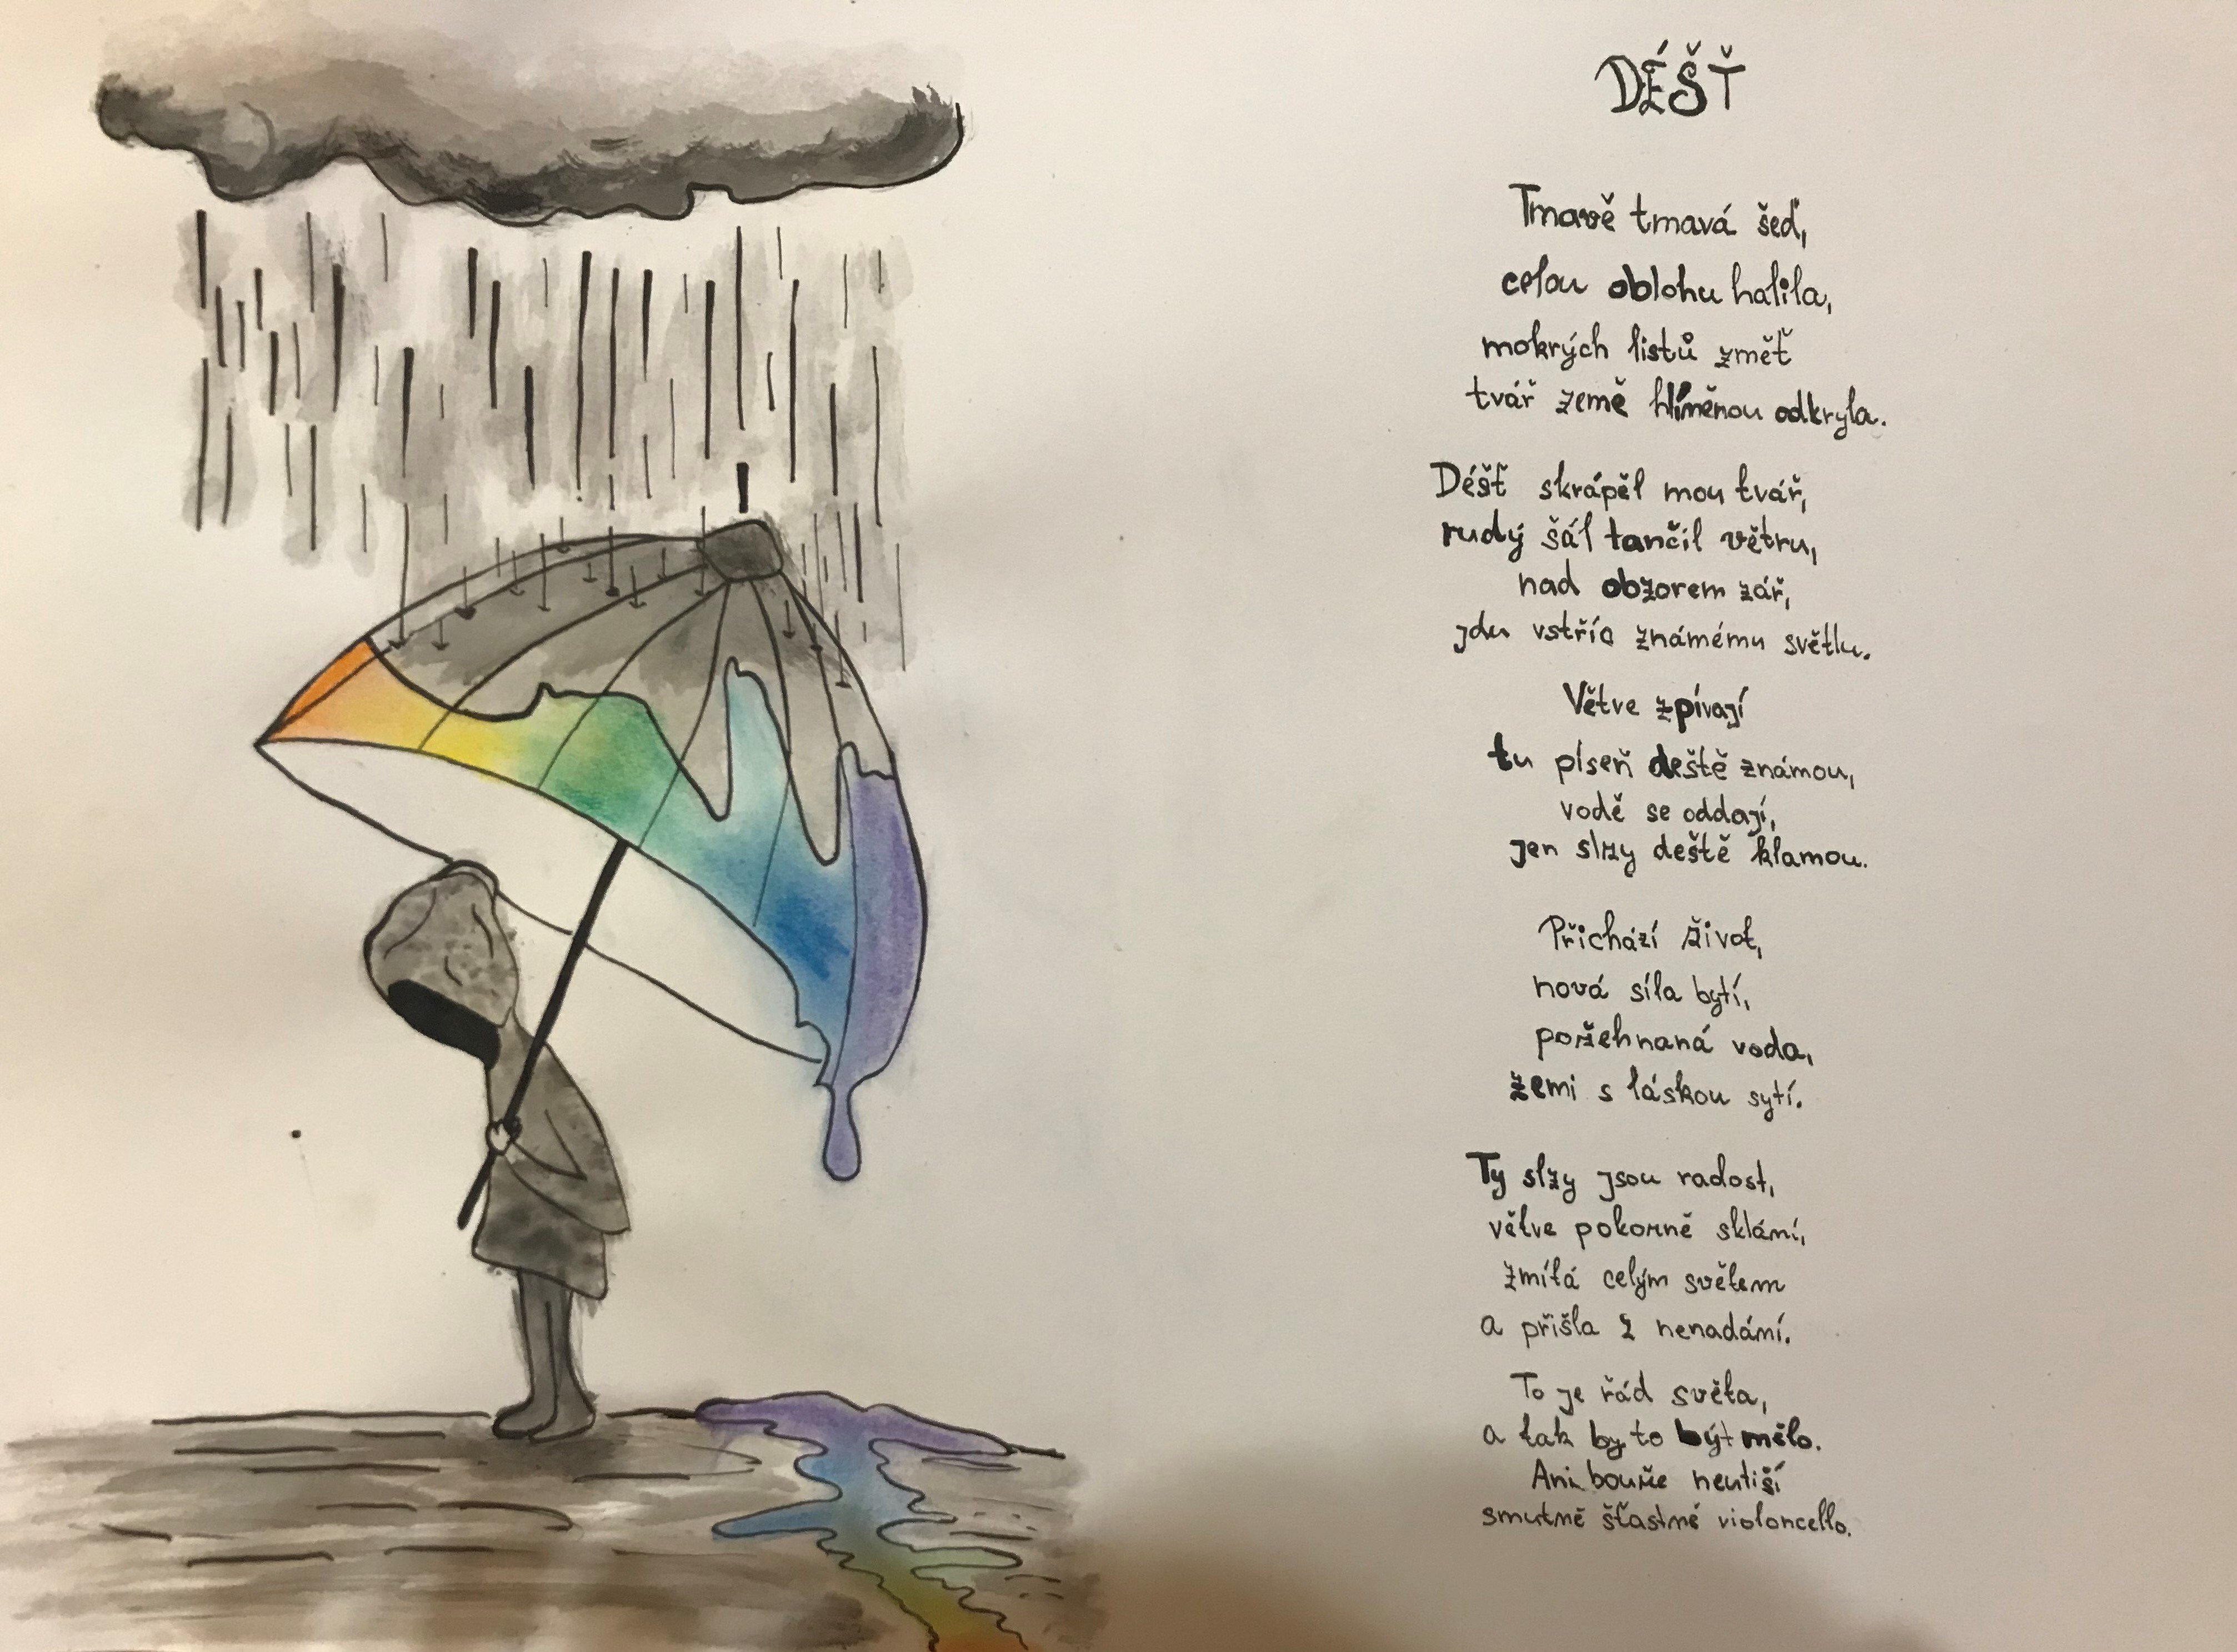 DÉŠŤ
Tmavě tmavá šeď,
celou oblohu halila,
mokrých listů změť
tvář země hlíněnou odkryla.
Déšť skrápěl mou tvář,
rudý šál tančil větru,
nad obzorem zář,
jdu vstříc známému světlu.
Větve zpívají
tu píseň deště známou,
vodě se oddají,
jen slzy deště klamou.
Přichází život,
nová síla bytí,
požehnaná voda,
zemi s láskou sytí.
Ty slzy jsou radost,
větve pokorně sklání,
zmítá celým světem
a přišla z nenadání.
To je řád světa,
a tak by to být mělo.
Ani bouře neutiší
smutně šťastné violoncello.